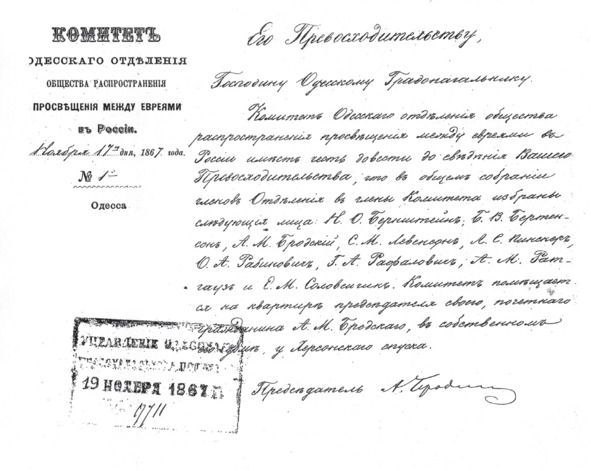 КОМИТЕТЪ
ОДЕССКАГО ОТДѢЛЕНІЯ
ОБЩЕСТВА РАСПРОСТРАНЕНІЯ
ПРОСВѢЩЕНІЯ МЕЖДУ ЕВРЕЯМИ
въ Россіи.
Ноября 17го дня, 1867 года.
№ 1й
Одесса
Его Превосходительству,
Господину Одесскому Градоначальнику.
Комитетъ Одесскаго отдѣленія общества
распространенія просвѣщенія между евреями въ
Россіи имѣетъ честь довести до свѣдѣнія Вашего
Превосходительства, что въ общемъ собраніи
членовъ Отдѣленія въ члены Комитета избраны
слѣдующія лица: Н. О. Бернштейнъ, Б. В. Бертен-
сонъ, А. М. Бродскій, С. М. Левенсонъ, Л. С. Пинскеръ,
О. А. Рабиновичъ, Г. А. Рафаловичъ, А. М. Рит-
гаузъ и Е. М. Соловейчикъ. Комитетъ помѣщает-
ся на квартирѣ предсѣдателя своего, почетнаго
гражданина А. М. Бродскаго, въ собственномъ
домѣ, у Херсонскаго спуска.
Предсѣдатель А. Бродскій
УПРАВЛЕНІЕ ОДЕССКАГО
19 НОЯБРЯ 1867 Г.
9711